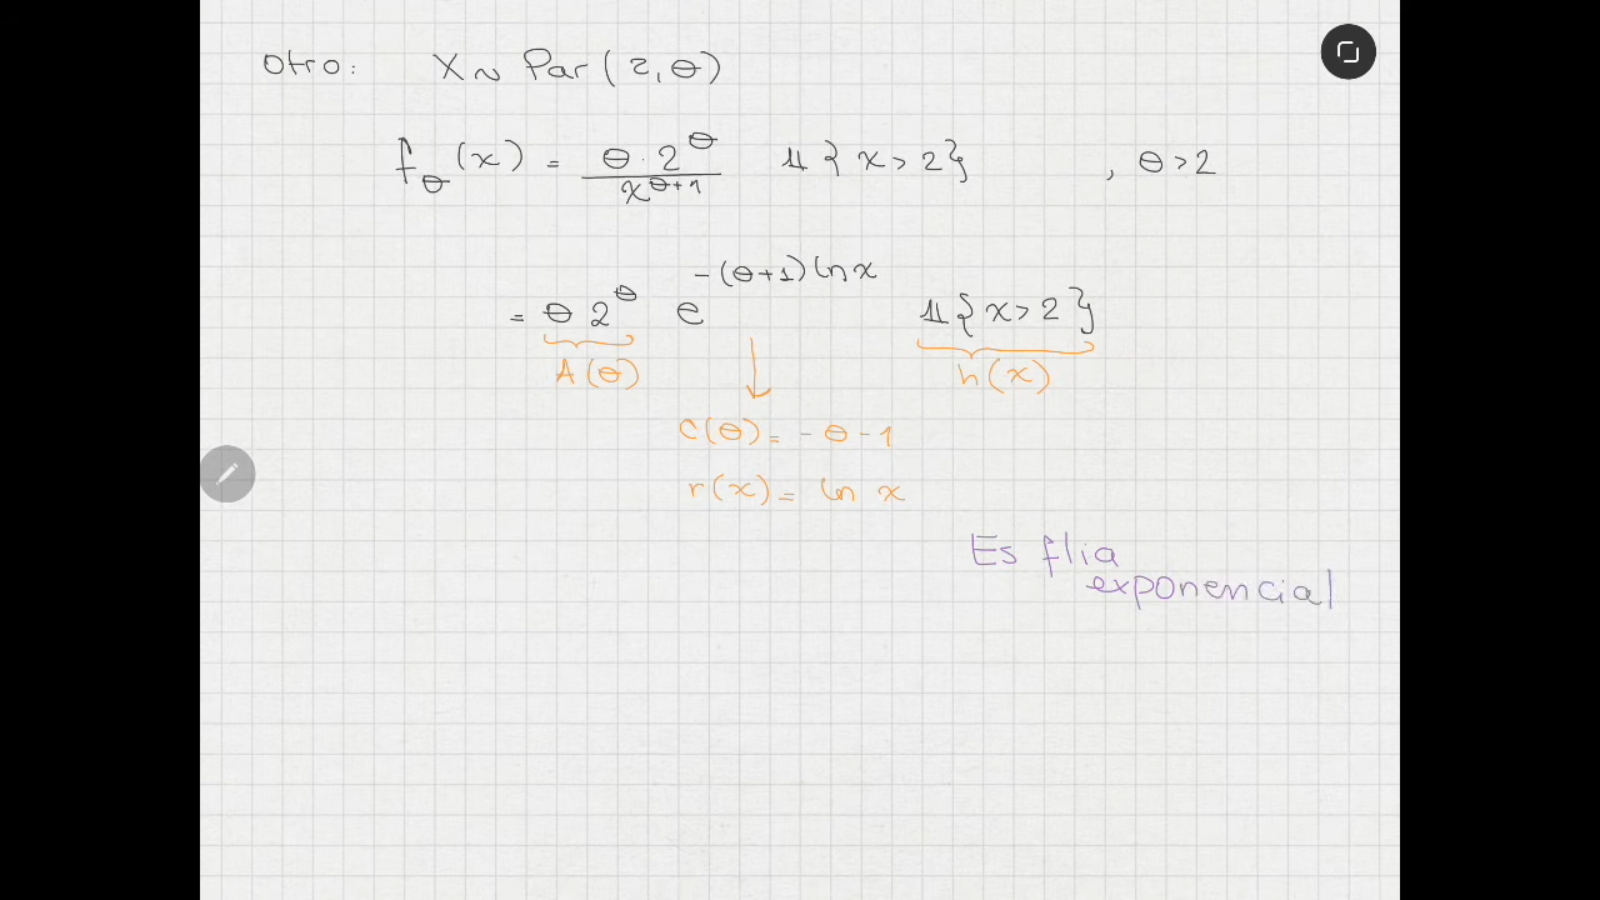 Otro: X ~ Par(2, θ)
f_θ(x) = θ·2^θ / x^(θ+1) 𝟙{x > 2} , θ > 2
= θ 2^θ e^(-(θ+1) ln x) 𝟙{x > 2}
A(θ) h(x)
c(θ) = -θ-1
r(x) = ln x
Es flia
exponencial